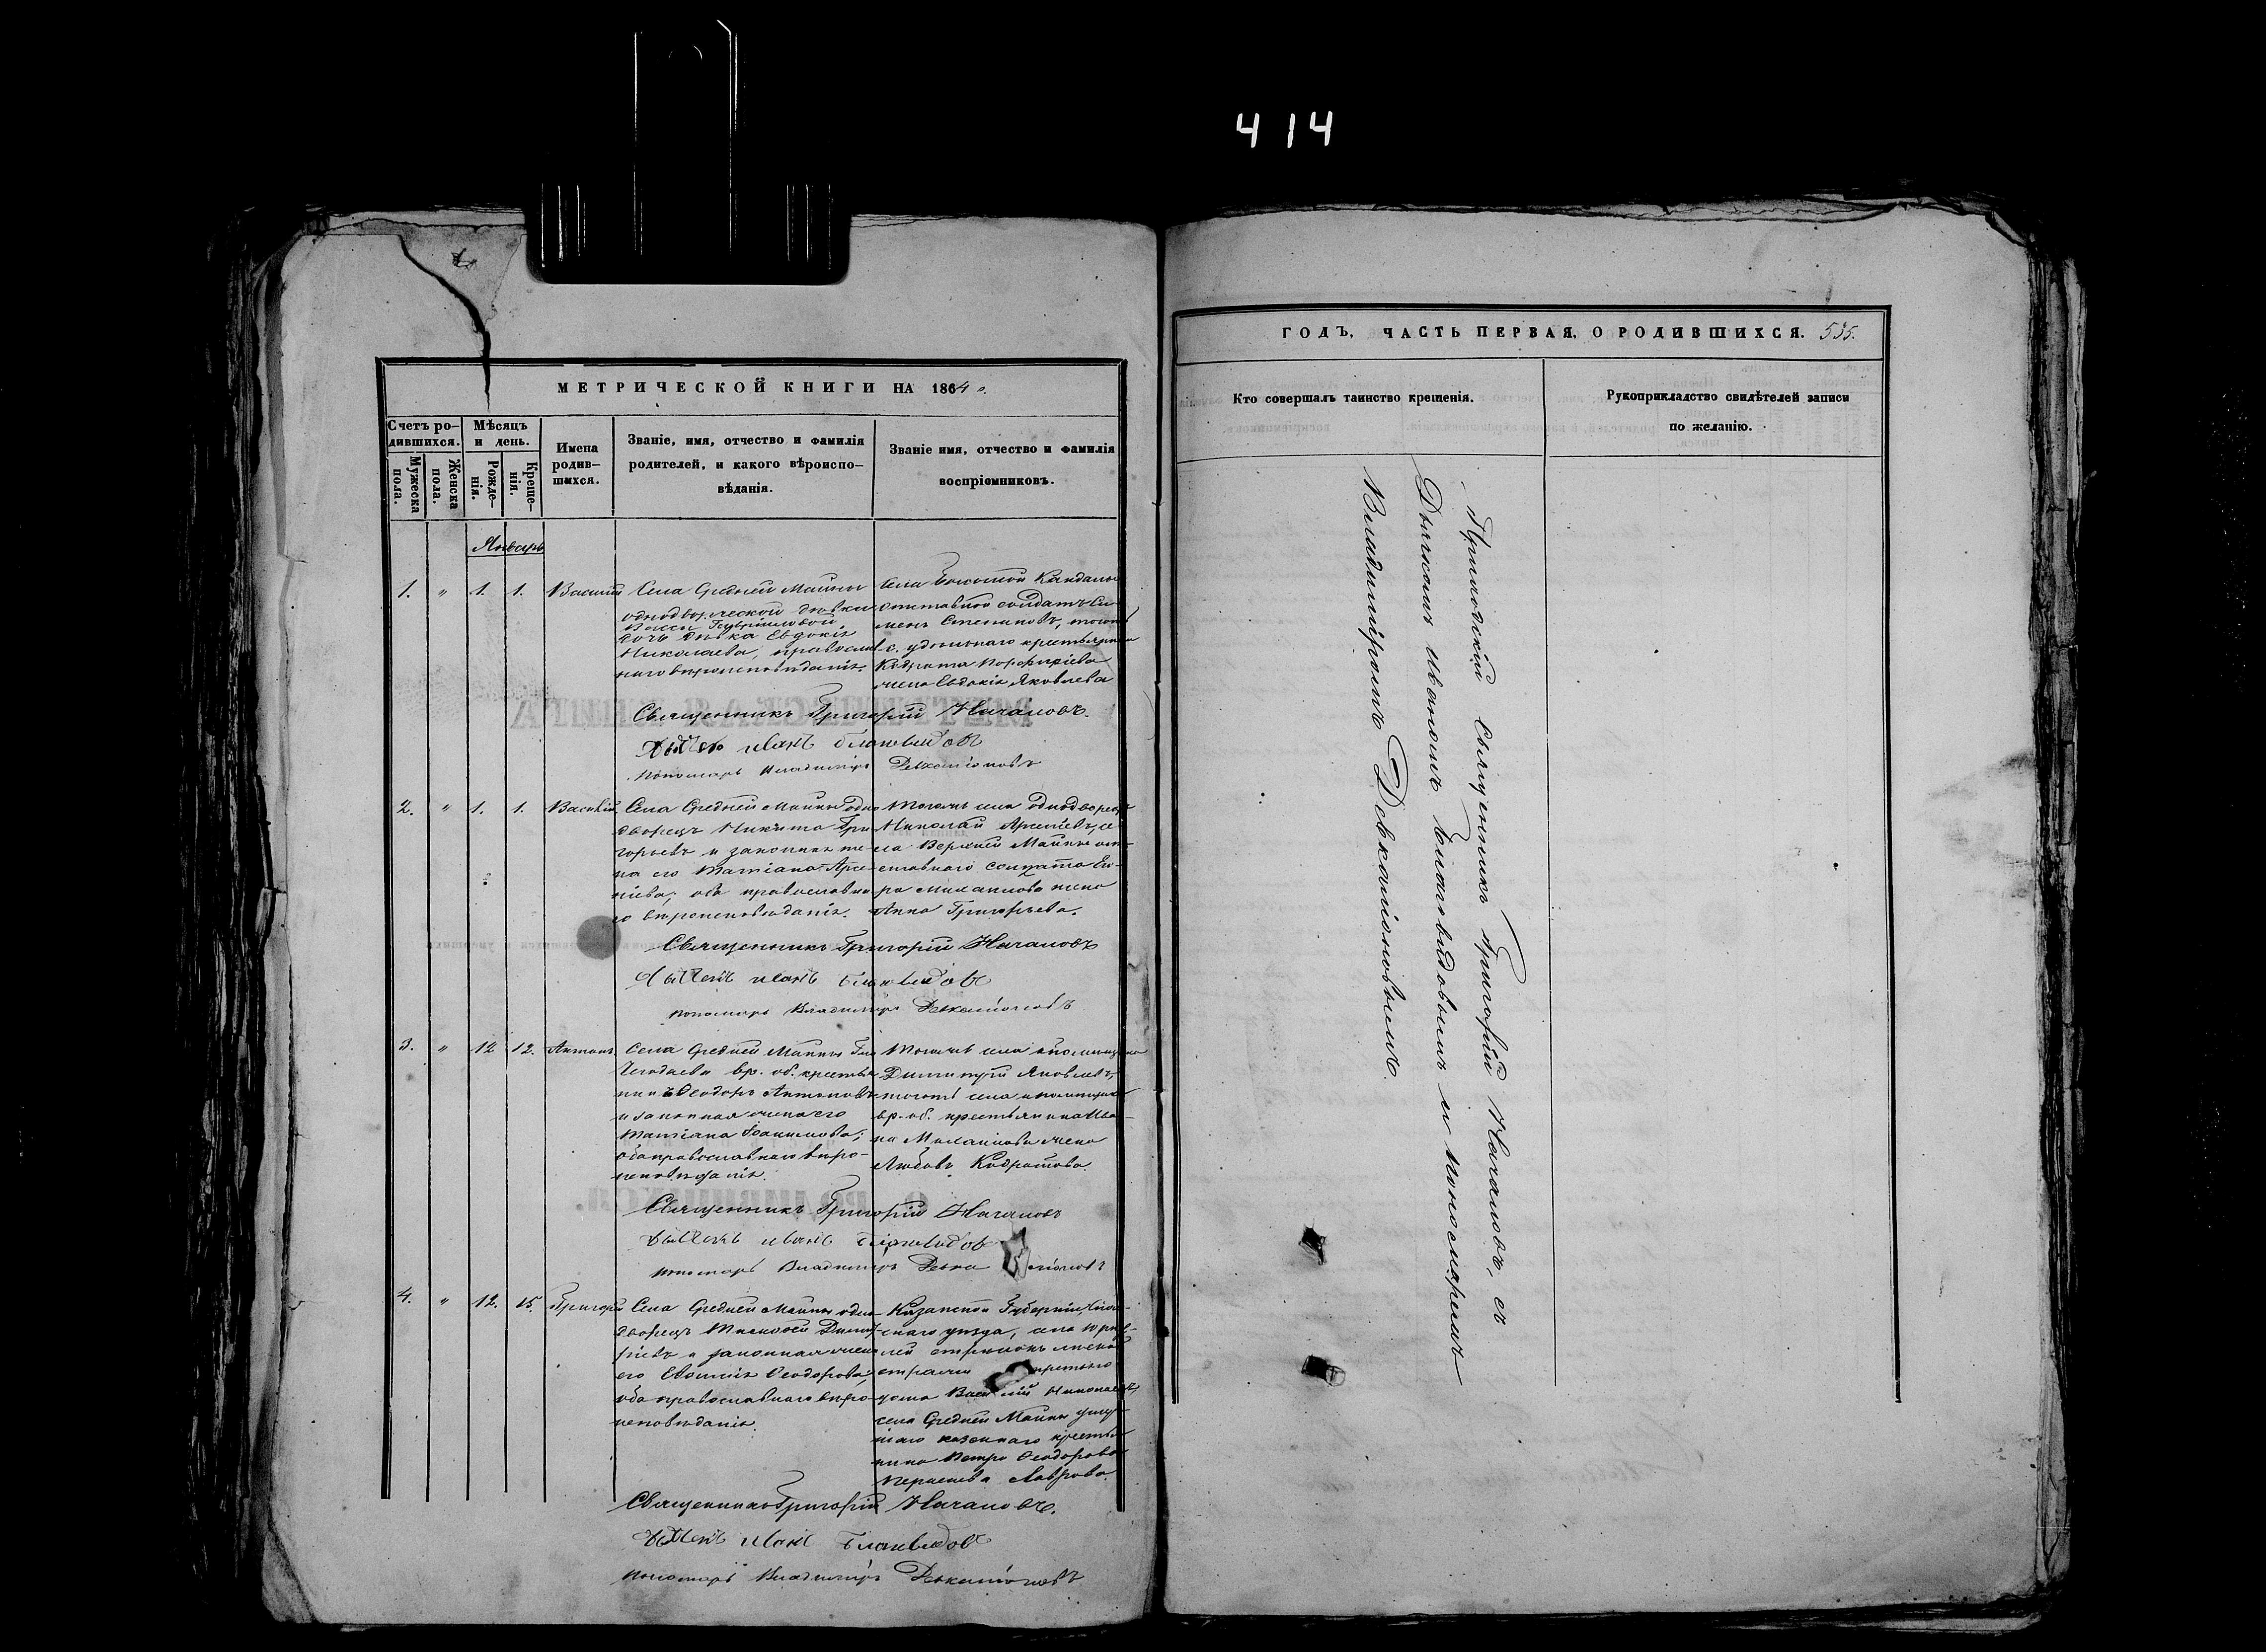 414
МЕТРИЧЕСКОЙ КНИГИ НА 1864
Счетъ ро-
дившихся.
Мѣсяцъ
и день.
Имена
родив-
шихся.
Званіе, имя, отчество и фамилія
родителей, и какого вѣроиспо-
вѣданія.
Званіе имя, отчество и фамилія
воспріемниковъ.
Мужеска
пола.
Женска
пола.
Рожде-
нія.
Креще-
нія.
Январь
1. " 1. 1. Василій
Села Средней Майны
однодворческой дѣвки
дочь дѣвка Евдокія
Николаева, православ-
наго вѣроисповѣданія.
Села
Кандалы
отставной солдатъ Си-
менъ Степановъ, тогожъ
с. удѣльнаго крестьянина
Кодрата Порфирьева
жена Евдокія Яковлева
Священникъ Григорій Началовъ.
Дьячекъ Иванъ Благовидовъ
Пономарь Владиміръ Девкаліоновъ
2. " 1. 1. Василій
Села Средней Майны одно-
дворецъ Никита Гри-
горьевъ и законная же-
на его Татіана Арсе-
ніева, оба православна-
го вѣроисповѣданія.
Тогожъ села однодворецъ
Николай Арсеніевъ, се-
ла Верхней Майны от-
ставнаго солдата Его-
ра Михайлова жена
Анна Григорьева.
Священникъ Григорій Началовъ
Дьячекъ Иванъ Благовидовъ
Пономарь Владиміръ Девкаліоновъ
3. " 12 12. Антонъ
Села Средней Майны Гна
Чегодаева вр. об. крестья-
нинъ Ѳеодоръ Антоновъ
и законная жена его
Татіана Іоакимова;
оба православнаго вѣро-
исповѣданія.
Тогожъ села
Димитрій Яковлевъ,
тогожъ села
вр. об. крестьянина Ива-
на Михайлова жена
Любовь Кодратова.
Священникъ Григорій Началовъ
Дьячекъ Иванъ Благовидовъ
Пономарь Владиміръ Девкаліоновъ
4. " 12. 15. Григорій
Села Средней Майны одно-
дворецъ Тимоѳей Димит-
ріевъ и законная жена
его Евѳимія Ѳеодорова;
оба православнаго вѣро-
исповѣданія.
Казанской Губерніи,
скаго уѣзда, села
Василій Николаевъ,
села Средней Майны
казеннаго крестья-
нина Петра Ѳеодорова
Лаврова.
Священникъ Григорій Началовъ.
Дьячекъ Иванъ Благовидовъ
Пономарь Владиміръ Девкаліоновъ
ГОДЪ, ЧАСТЬ ПЕРВАЯ, О РОДИВШИХСЯ. 535.
Кто совершалъ таинство крещенія.
Рукоприкладство свидѣтелей записи
по желанію.
Приходскій Священникъ Григорій Началовъ, съ
Дьячкомъ Иваномъ Благовидовымъ и пономаремъ
Владиміромъ Девкаліоновымъ.